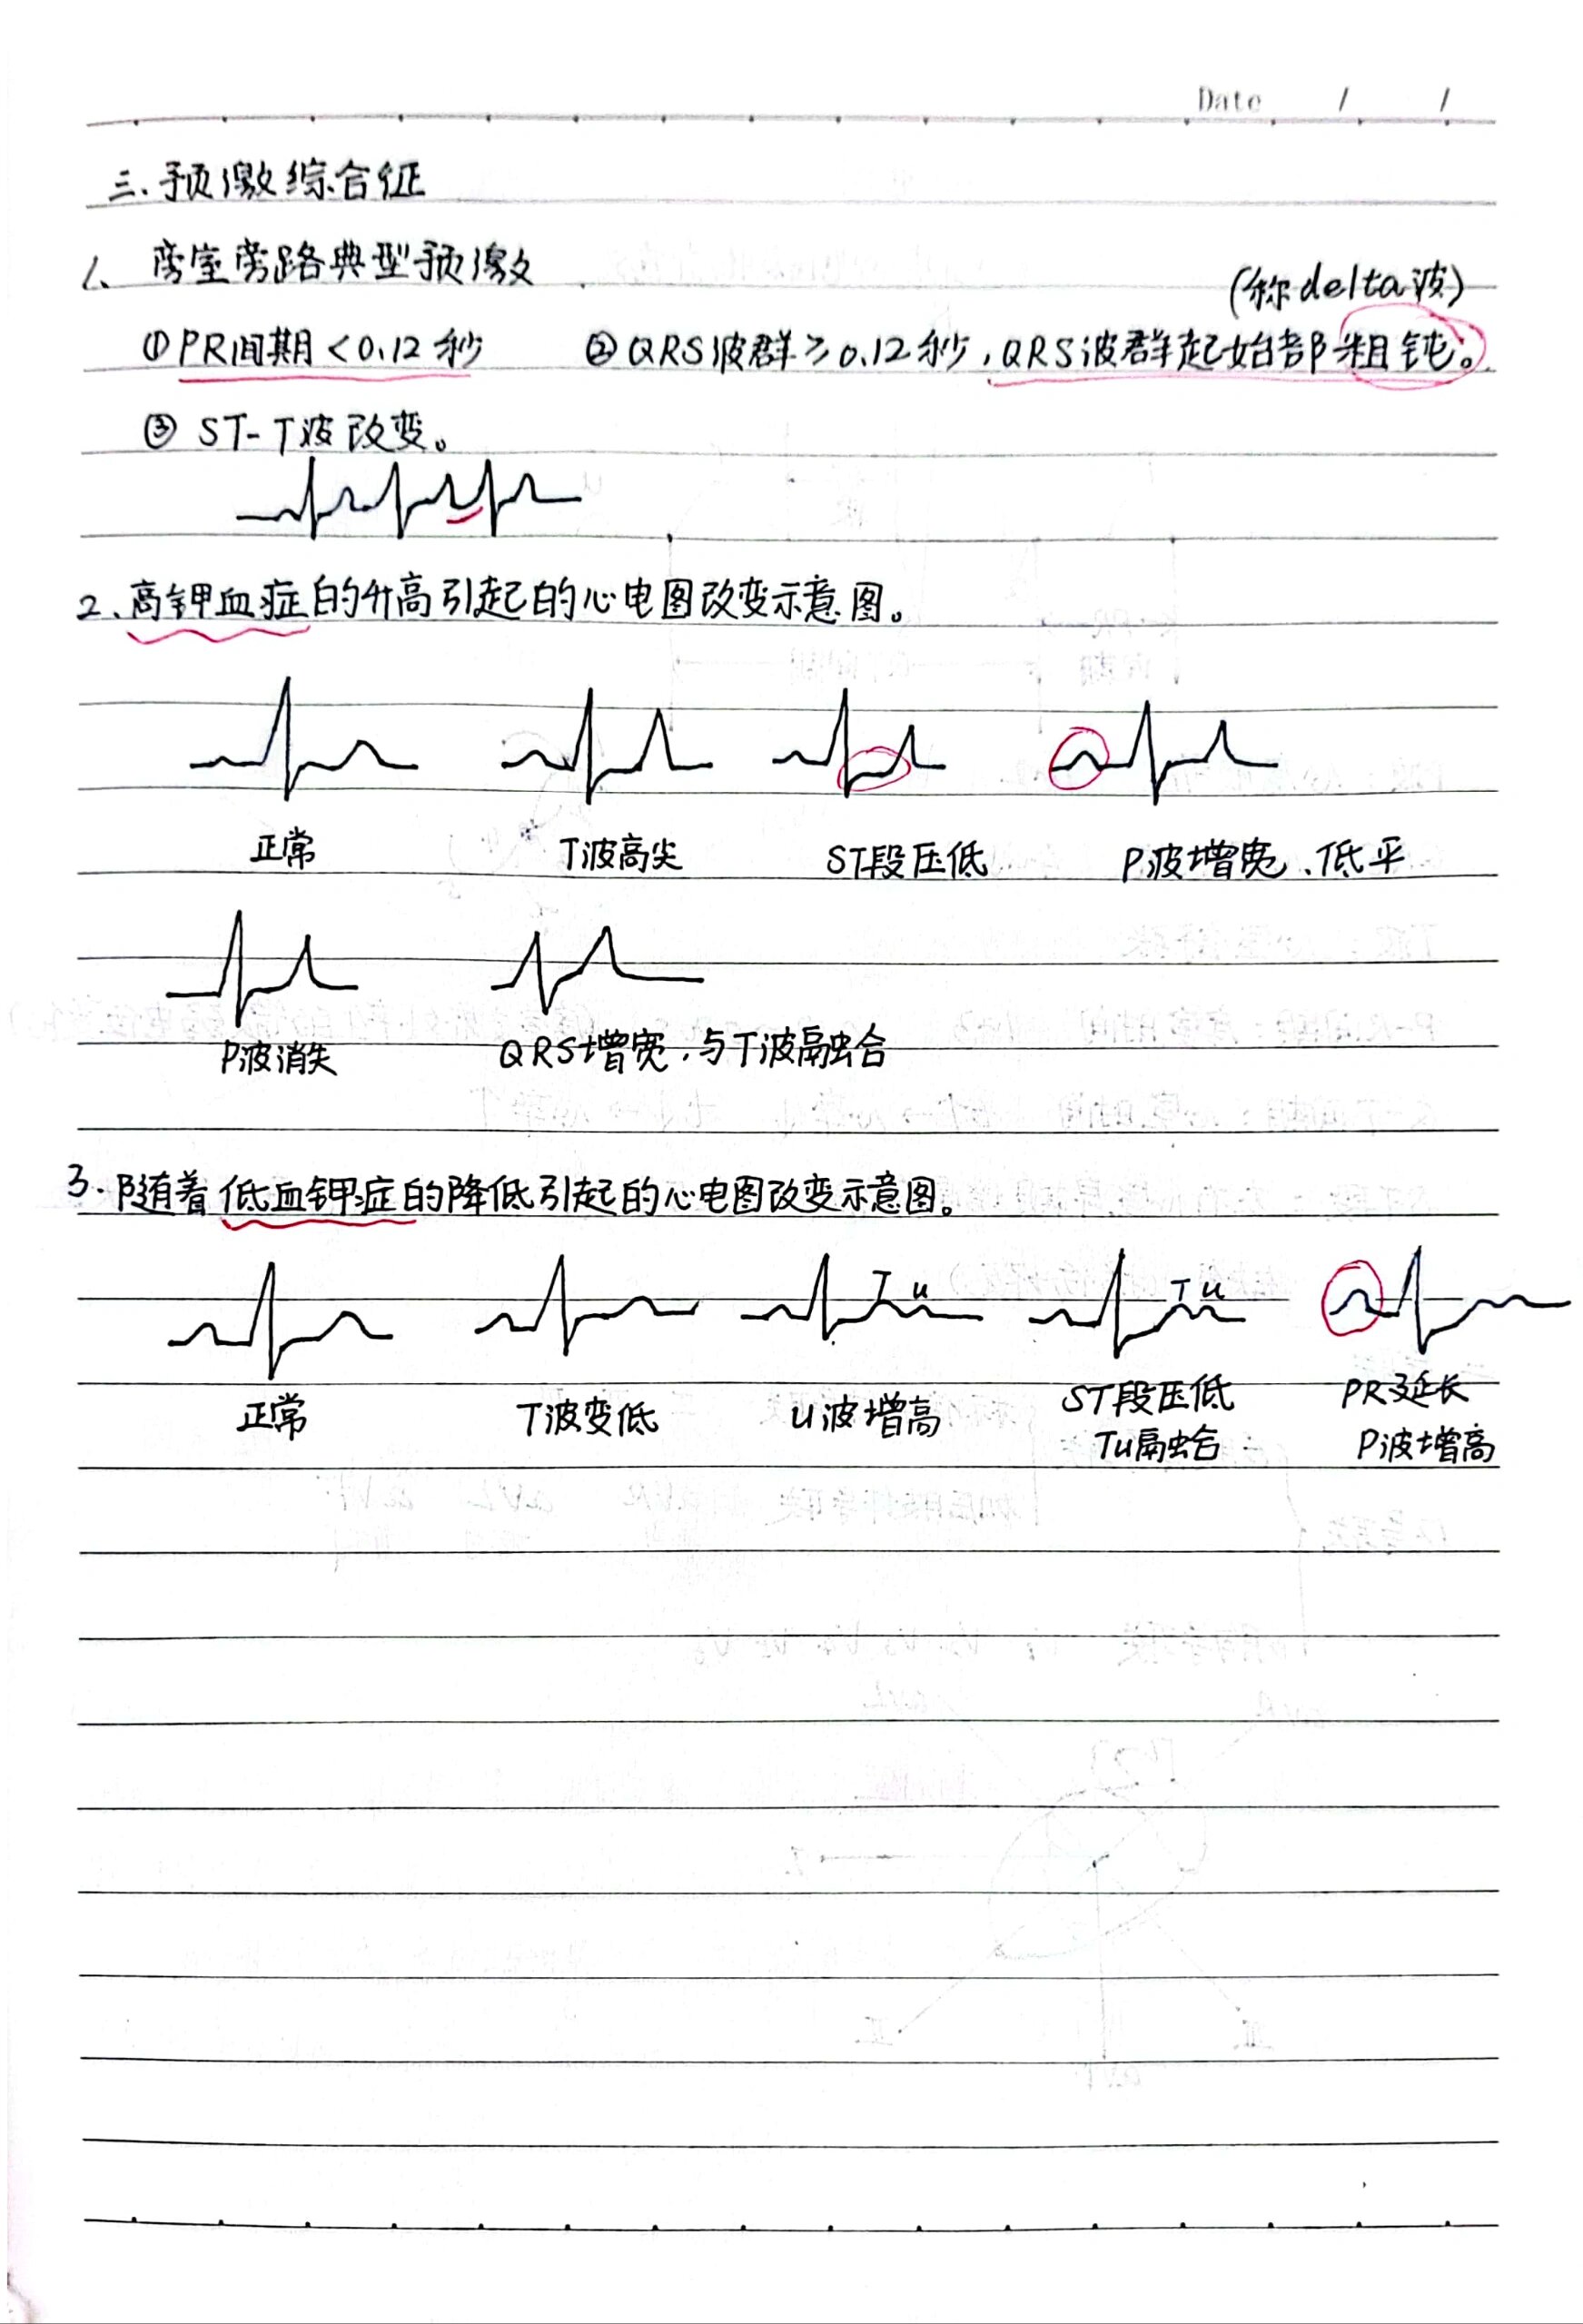 Date / /
三.预激综合征
1、房室旁路典型预激
(称delta波)
①PR间期<0.12秒 ②QRS波群≥0.12秒,QRS波群起始部粗钝。
③ ST-T波改变。
2、高钾血症的升高引起的心电图改变示意图。
正常 T波高尖 ST段压低 P波增宽、低平
P波消失 QRS增宽,与T波融合
3.随着低血钾症的降低引起的心电图改变示意图。
T u T u
正常 T波变低 U波增高 ST段压低 PR延长
Tu融合 P波增高